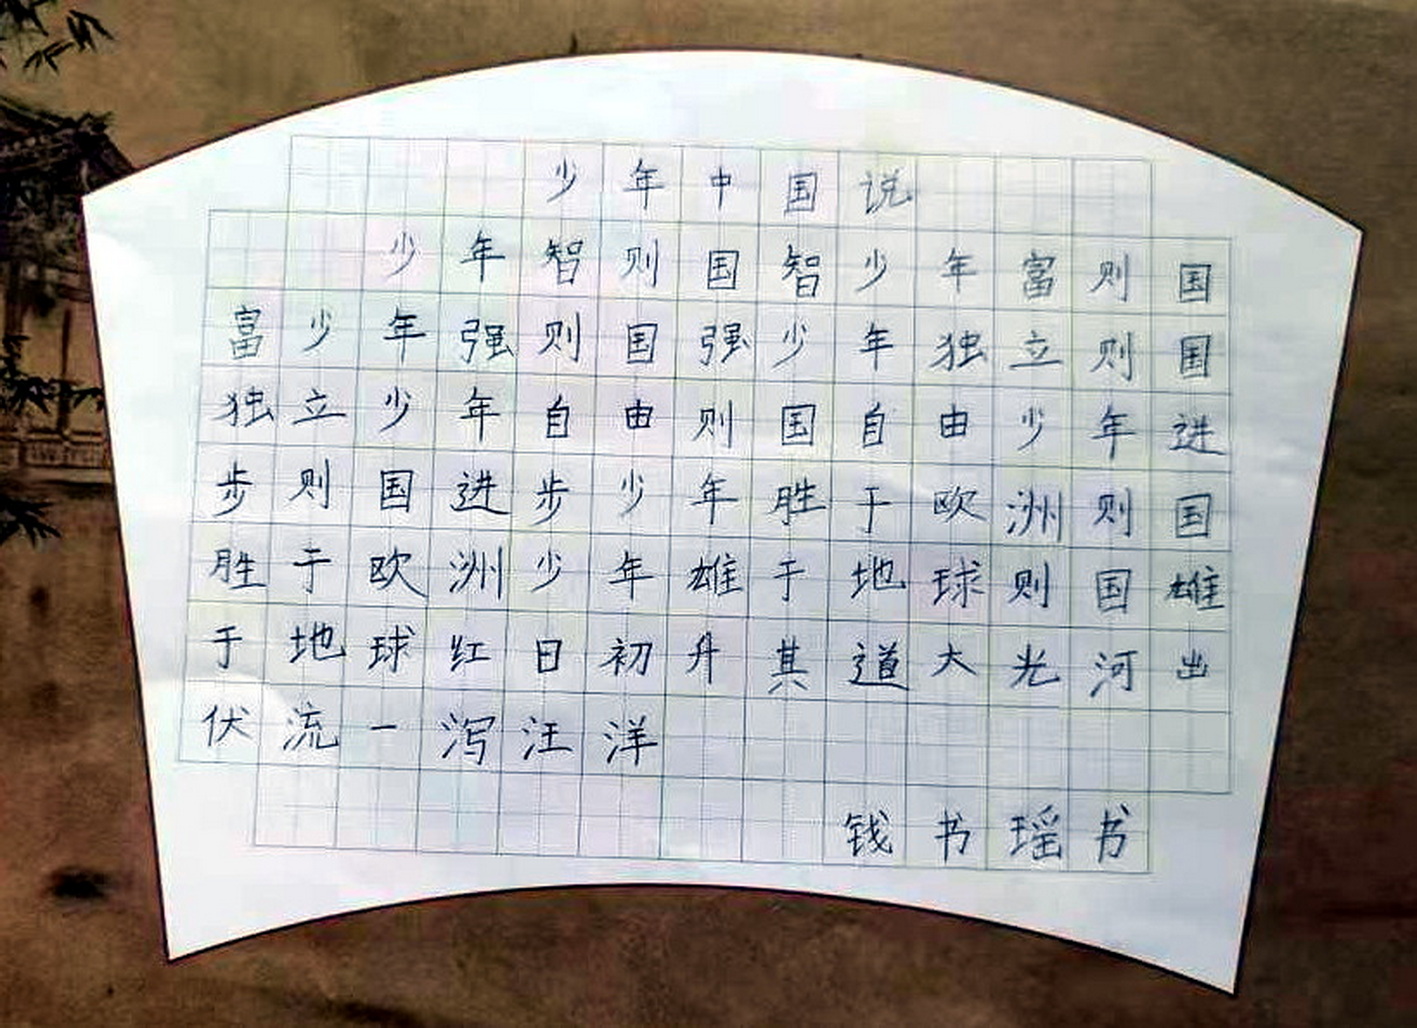 少年中国说
少年智则国智少年富则国
富少年强则国强少年独立则国
独立少年自由则国自由少年进
步则国进步少年胜于欧洲则国
胜于欧洲少年雄于地球则国雄
于地球红日初升其道大光河出
伏流一泻汪洋
钱书瑶书